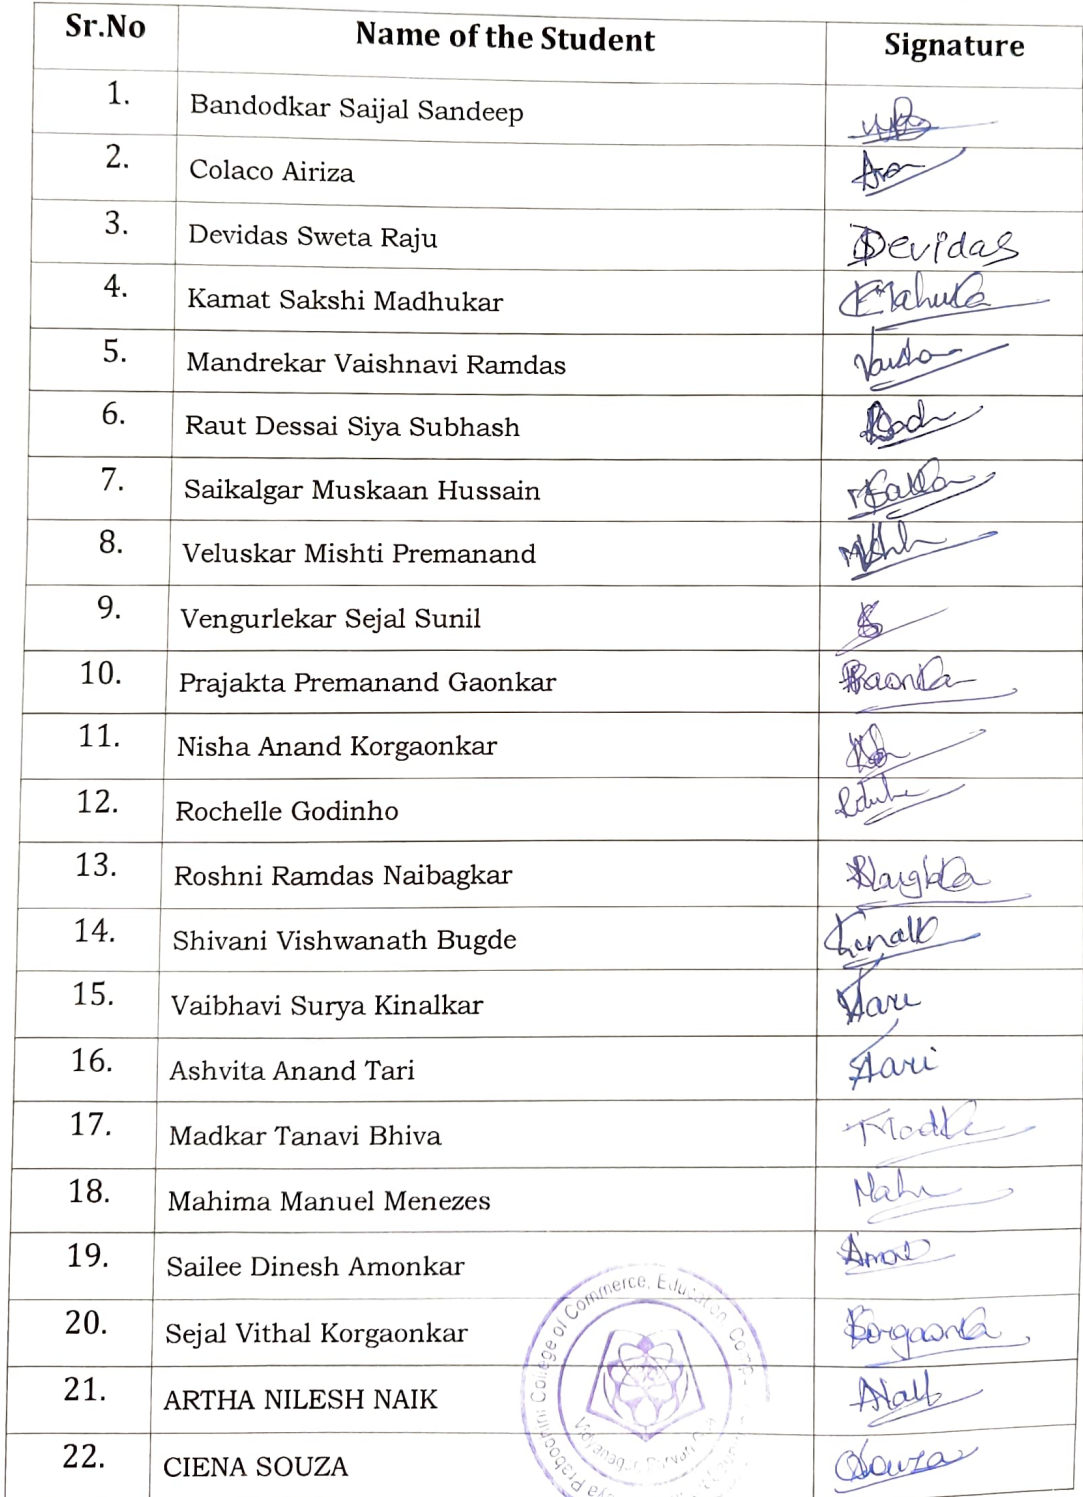 Sr.No Name of the Student Signature
1. Bandodkar Saijal Sandeep
2. Colaco Airiza
3. Devidas Sweta Raju Devidas
4. Kamat Sakshi Madhukar
5. Mandrekar Vaishnavi Ramdas
6. Raut Dessai Siya Subhash
7. Saikalgar Muskaan Hussain
8. Veluskar Mishti Premanand
9. Vengurlekar Sejal Sunil
10. Prajakta Premanand Gaonkar
11. Nisha Anand Korgaonkar
12. Rochelle Godinho
13. Roshni Ramdas Naibagkar
14. Shivani Vishwanath Bugde
15. Vaibhavi Surya Kinalkar
16. Ashvita Anand Tari Tari
17. Madkar Tanavi Bhiva
18. Mahima Manuel Menezes
19. Sailee Dinesh Amonkar
20. Sejal Vithal Korgaonkar
21. ARTHA NILESH NAIK
22. CIENA SOUZA Souza
College of Commerce, Education